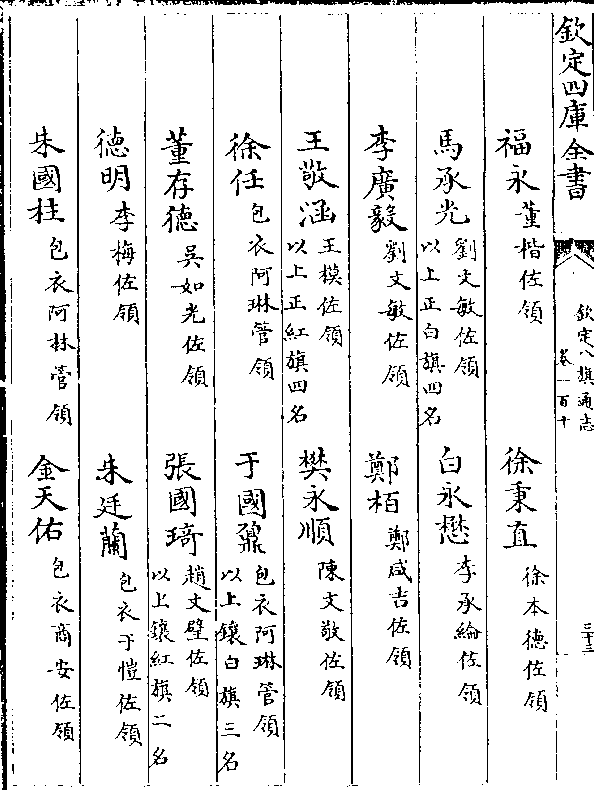 欽定四庫全書
欽定八旗通志
卷一百十
三十三
福永 董楷佐領 徐秉直 徐本德佐領
馬承光 劉文敏佐領 以上正白旗四名 白永懋 李承綸佐領
李廣毅 劉文敏佐領 鄭栢 鄭咸吉佐領
王敬涵 王模佐領 以上正紅旗四名 樊永順 陳文敬佐領
徐任 包衣阿琳管領 于國鼐 包衣阿琳管領 以上鑲白旗三名
董存德 吳如光佐領 張國琦 趙文璧佐領 以上鑲紅旗二名
德明 李梅佐領 朱廷蘭 包衣于愷佐領
朱國柱 包衣阿林管領 金天佑 包衣商安佐領